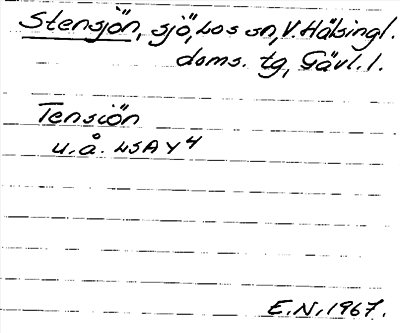 Stensjön, sjö, Los sn, V. Hälsingl.
doms. tg, Gävl. l.
Tensiön
u.å. LSA Y4
E.N. 1967.